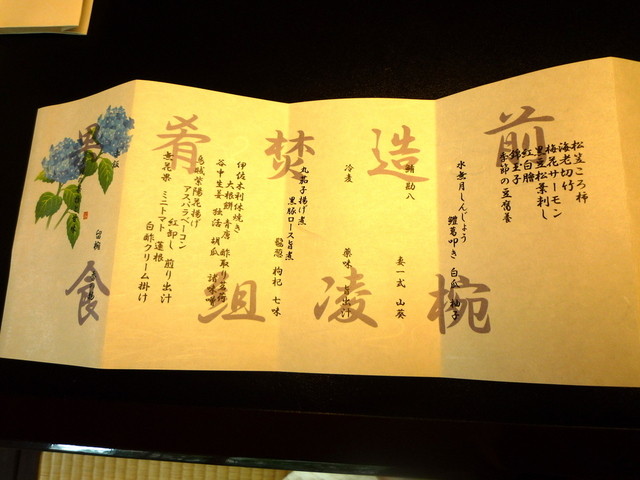 前
松笠ころ柿
海老切竹
梅花サーモン
黒豆松葉刺し
紅白膾
錦玉子
季節の豆腐養
椀
水無月しんじょう
鱧葛叩き 白瓜 柚子
造
鮪 勘八
妻一式 山葵
凌
冷麦
薬味 旨出汁
焚
丸茄子揚げ煮
黒豚ロース旨煮
枸杞 七味
肴
組
伊佐木利休焼き
大根餅 青唐 酢取り茗荷
谷中生姜 独活 胡瓜 諸味噌
烏賊紫陽花揚げ
アスパラベーコン
紅卸し 煎り出汁
無花果 ミニトマト 蓮根
白酢クリーム掛け
食
留椀